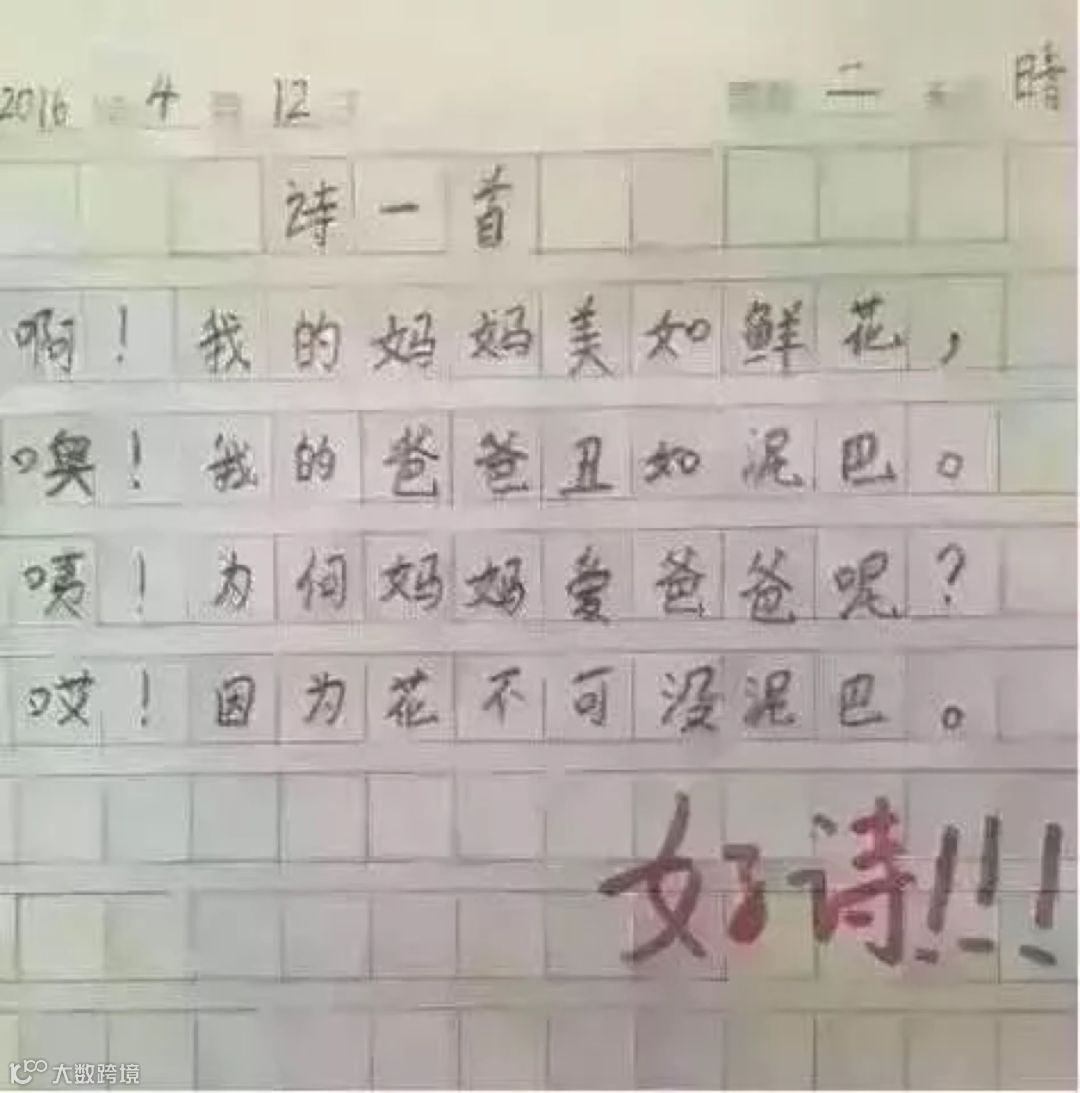 2016 4 12 二 晴
诗一首
啊！我的妈妈美如鲜花，
噢！我的爸爸丑如泥巴。
咦！为何妈妈爱爸爸呢？
哎！因为花不可没泥巴。
好诗!!!
大数跨境